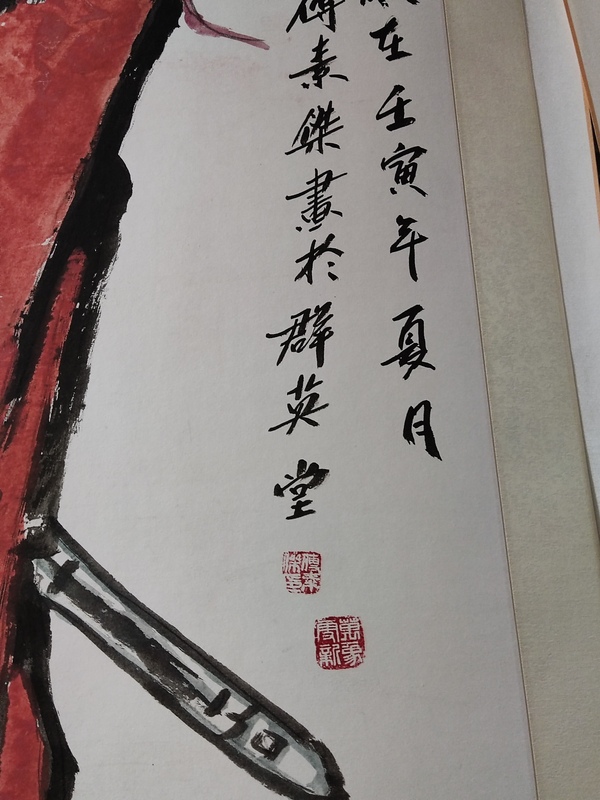 在壬寅年夏月
傅素傑畫於群英堂
萬象更新